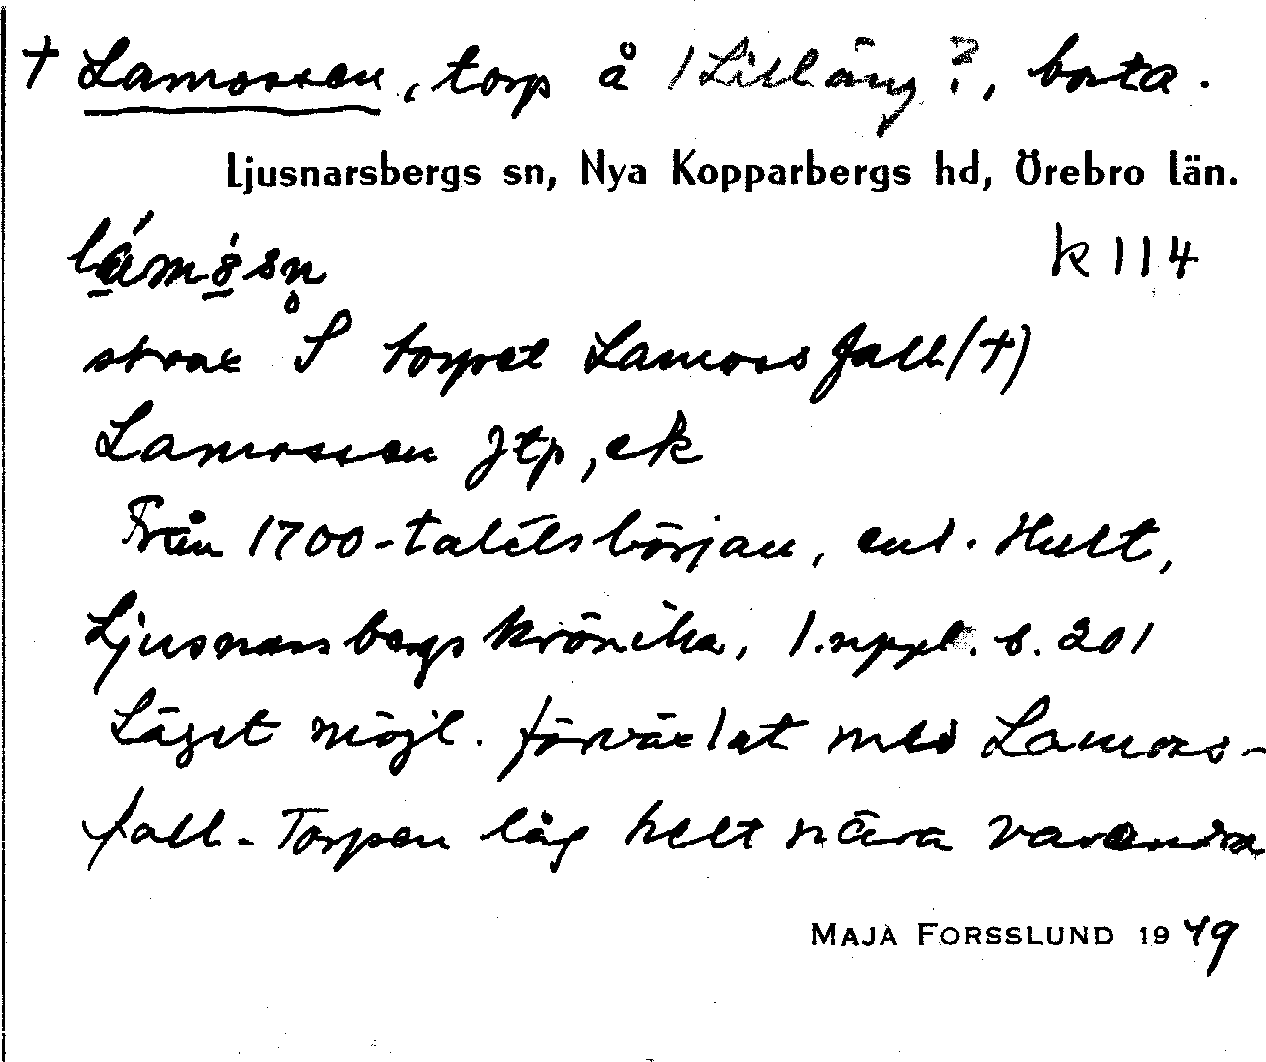 † Lamossen, torp å 1 Lillång ?, borta.
Ljusnarsbergs sn, Nya Kopparbergs hd, Örebro län.
lámósn̥
k 114
strax S torpet Lamossfall (†)
Lamossen jtp, ek
Från 1700-talets början, enl. Hult,
Ljusnarsbergskrönika, 1. uppl. s. 201
Läget möjl. förväxlat med Lamoss-
fall - Torpen låg helt nära varandra
MAJA FORSSLUND 1949